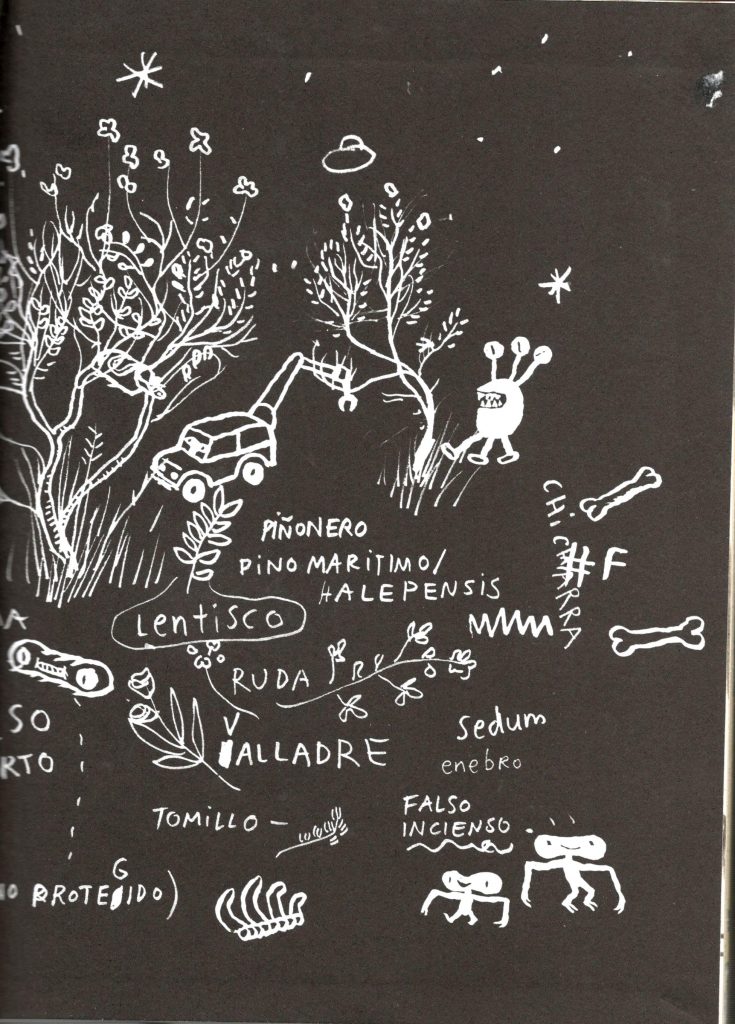 PIÑONERO
PINO MARITIMO/
HALEPENSIS
CHICHARRA
#F
LENTISCO
RUDA
VALLADRE
SEDUM
enebro
TOMILLO –
FALSO
INCIENSO
SO
RTO
PROTEGIDO)